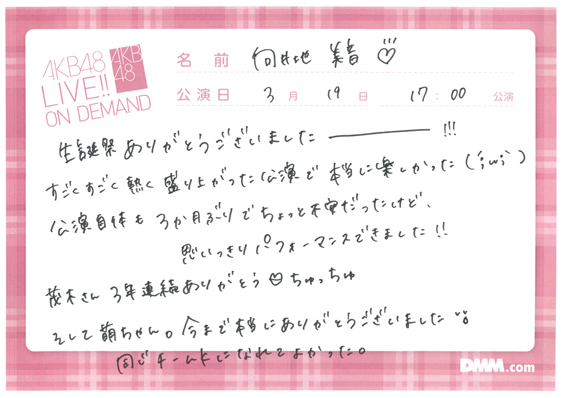 AKB48
LIVE!!
ON DEMAND
AKB
48
名前 向井地 美音 ♡
公演日 3月19日 17:00 公演
生誕祭ありがとうございました ――― !!!
すごくすごく熱く盛り上がった公演で本当に楽しかった (;ω;)
公演自体も3か月ぶりでちょっと不安だったけど、
思いっきりパフォーマンスできました!!
茂木さん 3年連続ありがとう♡ちゅっちゅ
そして萌ちゃん。今まで本当にありがとうございました
同じチームKになれてよかった。
DMM.com